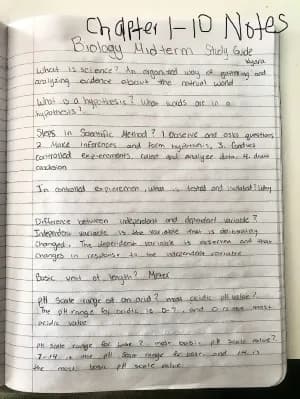 Chapter 1-10 Notes
Biology Midterm Study Guide
What is science? An organized way of gathering and
analyzing evidence about the natural world
What is a hypothesis? What words are in a
hypothesis?
Steps in Scientific Method? 1. Observe and asks questions
2. Make inferences and form hypothesis, 3. Conduct
controlled experiments, collect and analyze data. 4. draw
conclusion
In controlled experiment, what is tested and isolated? Why
Difference between independent and dependent variable?
Independent variable is the variable that is deliberatley
changed. The dependent variable is observed and that
changes in response to the independent variable
Basic unit of length? Meter
pH scale range of an acid? most acidic pH value?
The pH range for acidic is 0-7, and 0 is the most
acidic value
pH scale range for base? most basic pH scale value?
7-14 is the pH scale range for base, and 14 is
the most basic pH scale value.